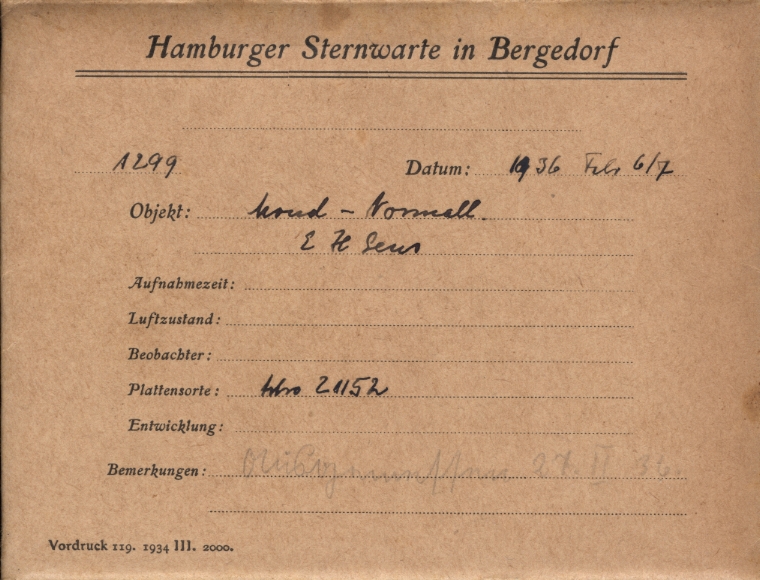 Hamburger Sternwarte in Bergedorf
1299 Datum: 1936 Febr 6/7
Objekt: Mond – Normall.
E H
Aufnahmezeit:
Luftzustand:
Beobachter:
Plattensorte: 21152
Entwicklung:
Bemerkungen: 36
Vordruck 119. 1934 III. 2000.